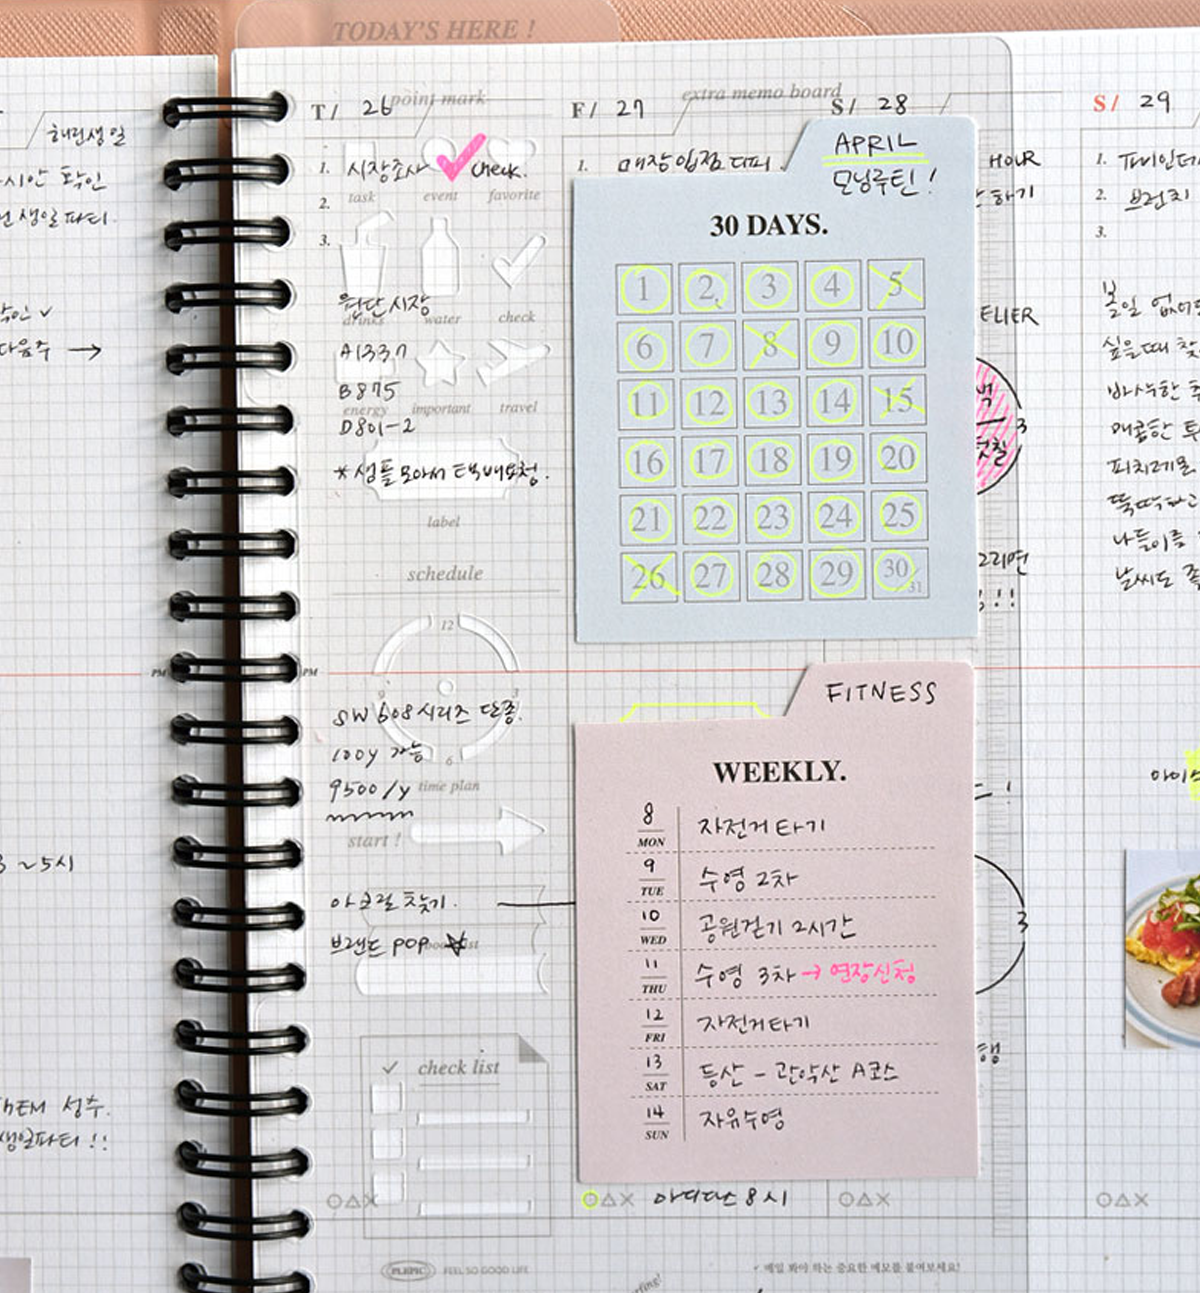 TODAY'S HERE !
해린생일
시안 확인
생일파티.
확인 ✓
다음주 →
~5시
성수.
생일파티!!
T/ 26
point mark
1. 시장조사 check.
task event favorite
2.
3.
원단시장
drinks water check
A1337
B875
energy important travel
D801-2
* 샘플 모아서 택배요청.
label
schedule
12
9 3
6
PM
PM
SW 608 시리즈 단종.
100y 가능
9500/y
time plan
start !
아크릴 찾기.
브랜드 POP
check list
○△X
PLEPIC FEEL SO GOOD LIFE
F/ 27
extra memo board
1. 매장입점 디피.
S/ 28
HOUR
하기
ELIER
3
그리면
!!
APRIL
모닝루틴!
30 DAYS.
1 2 3 4 5
6 7 8 9 10
11 12 13 14 15
16 17 18 19 20
21 22 23 24 25
26 27 28 29 30
31
FITNESS
WEEKLY.
8 MON 자전거 타기
9 TUE 수영 2차
10 WED 공원걷기 2시간
11 THU 수영 3차 → 연장신청
12 FRI 자전거타기
13 SAT 등산 - 관악산 A코스
14 SUN 자유수영
3
○△X 아디다스 8시
○△X
✓ 매일 봐야 하는 중요한 메모를 붙여보세요!
S/ 29
1.
2. 브런치
3.
볼일 없어도
싶을때
바삭한
매콤한
피치레몬
뚝딱하고
나들이를
날씨도
아이스
○△X